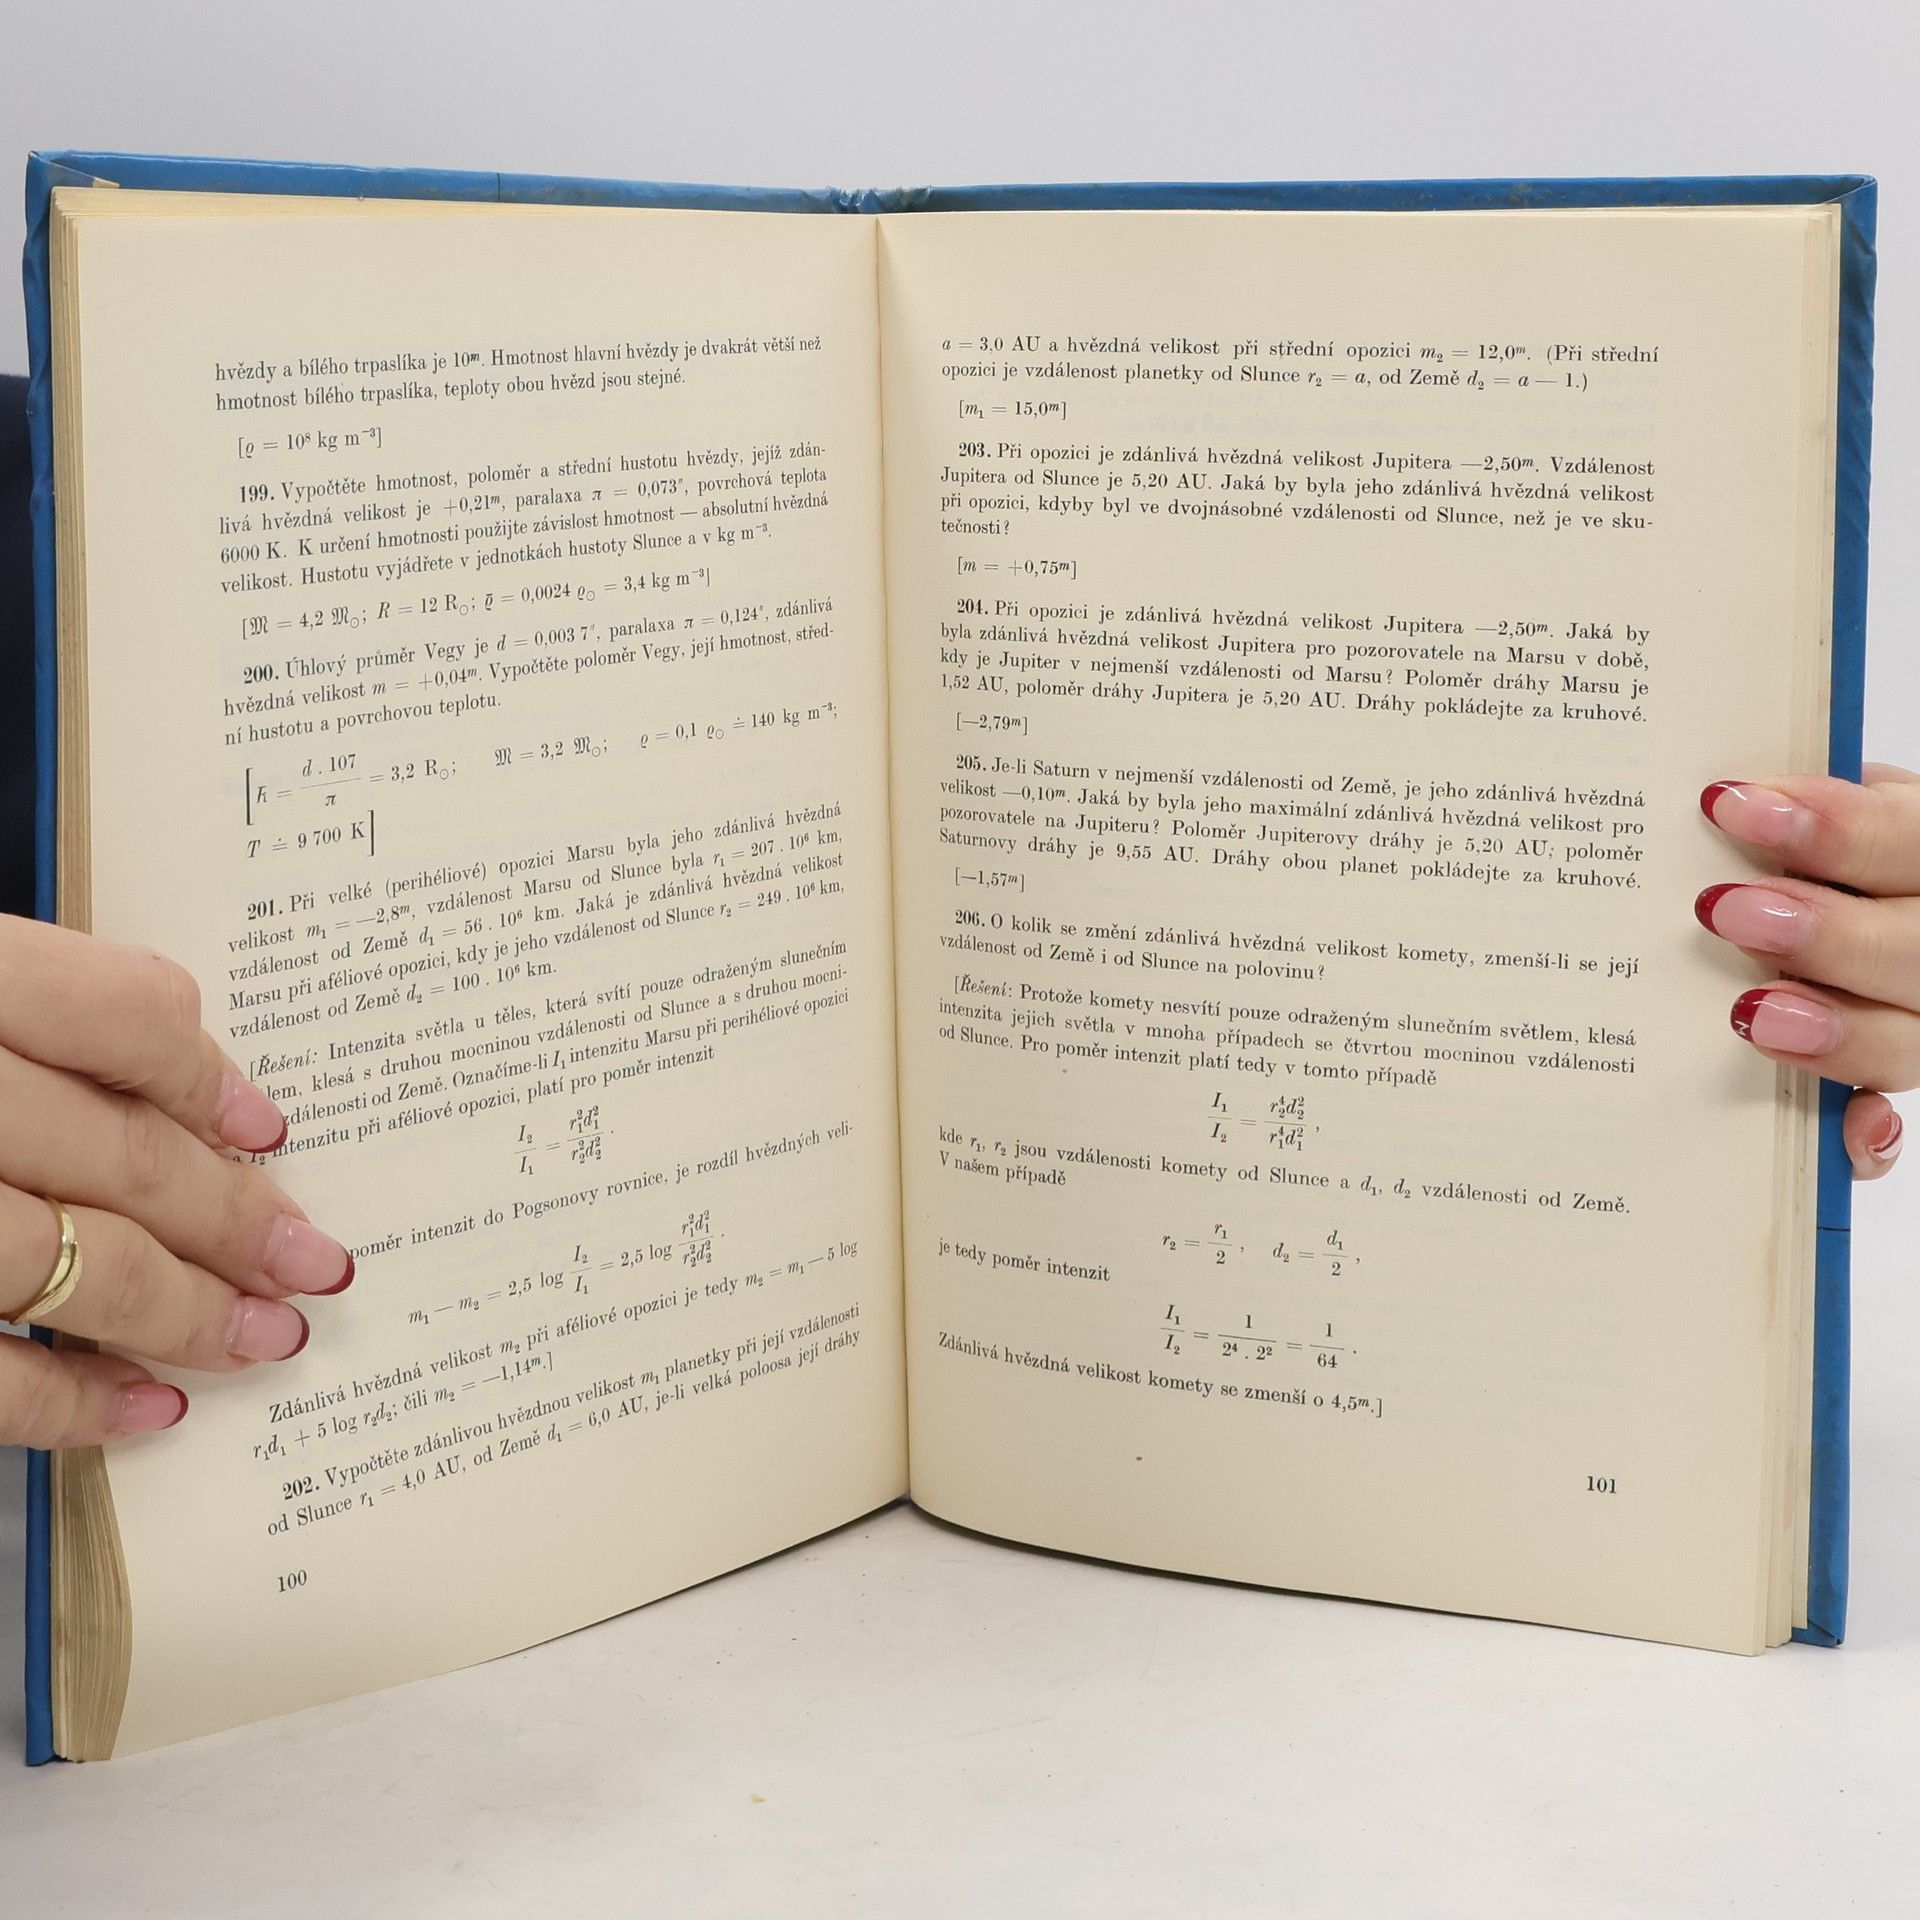 hvězdy a bílého trpaslíka je 10ᵐ. Hmotnost hlavní hvězdy je dvakrát větší než
hmotnost bílého trpaslíka, teploty obou hvězd jsou stejné.
[ϱ = 10⁸ kg m⁻³]
199. Vypočtěte hmotnost, poloměr a střední hustotu hvězdy, jejíž zdán-
livá hvězdná velikost je +0,21ᵐ, paralaxa π = 0,073″, povrchová teplota
6000 K. K určení hmotnosti použijte závislost hmotnost — absolutní hvězdná
velikost. Hustotu vyjádřete v jednotkách hustoty Slunce a v kg m⁻³.
[𝔐 = 4,2 𝔐☉; R = 12 R☉; ϱ̄ = 0,0024 ϱ☉ = 3,4 kg m⁻³]
200. Úhlový průměr Vegy je d = 0,003 7″, paralaxa π = 0,124″, zdánlivá
hvězdná velikost m = +0,04ᵐ. Vypočtěte poloměr Vegy, její hmotnost, střed-
ní hustotu a povrchovou teplotu.
[R = d . 107 / π = 3,2 R☉; 𝔐 = 3,2 𝔐☉; ϱ = 0,1 ϱ☉ ≐ 140 kg m⁻³;
T ≐ 9 700 K]
201. Při velké (perihéliové) opozici Marsu byla jeho zdánlivá hvězdná
velikost m₁ = —2,8ᵐ, vzdálenost Marsu od Slunce byla r₁ = 207 . 10⁶ km,
vzdálenost od Země d₁ = 56 . 10⁶ km. Jaká je zdánlivá hvězdná velikost
Marsu při aféliové opozici, kdy je jeho vzdálenost od Slunce r₂ = 249 . 10⁶ km,
vzdálenost od Země d₂ = 100 . 10⁶ km.
[Řešení: Intenzita světla u těles, která svítí pouze odraženým slunečním
lem, klesá s druhou mocninou vzdálenosti od Slunce a s druhou mocni-
zdálenosti od Země. Označíme-li I₁ intenzitu Marsu při perihéliové opozici
a I₂ intenzitu při aféliové opozici, platí pro poměr intenzit
I₂/I₁ = r₁²d₁²/r₂²d₂² .
poměr intenzit do Pogsonovy rovnice, je rozdíl hvězdných veli-
m₁ — m₂ = 2,5 log I₂/I₁ = 2,5 log r₁²d₁²/r₂²d₂² .
Zdánlivá hvězdná velikost m₂ při aféliové opozici je tedy m₂ = m₁ — 5 log
r₁d₁ + 5 log r₂d₂; čili m₂ = —1,14ᵐ.]
202. Vypočtěte zdánlivou hvězdnou velikost m₁ planetky při její vzdálenosti
od Slunce r₁ = 4,0 AU, od Země d₁ = 6,0 AU, je-li velká poloosa její dráhy
100
a = 3,0 AU a hvězdná velikost při střední opozici m₂ = 12,0ᵐ. (Při střední
opozici je vzdálenost planetky od Slunce r₂ = a, od Země d₂ = a — 1.)
[m₁ = 15,0ᵐ]
203. Při opozici je zdánlivá hvězdná velikost Jupitera —2,50ᵐ. Vzdálenost
Jupitera od Slunce je 5,20 AU. Jaká by byla jeho zdánlivá hvězdná velikost
při opozici, kdyby byl ve dvojnásobné vzdálenosti od Slunce, než je ve sku-
tečnosti?
[m = +0,75ᵐ]
204. Při opozici je zdánlivá hvězdná velikost Jupitera —2,50ᵐ. Jaká by
byla zdánlivá hvězdná velikost Jupitera pro pozorovatele na Marsu v době,
kdy je Jupiter v nejmenší vzdálenosti od Marsu? Poloměr dráhy Marsu je
1,52 AU, poloměr dráhy Jupitera je 5,20 AU. Dráhy pokládejte za kruhové.
[—2,79ᵐ]
205. Je-li Saturn v nejmenší vzdálenosti od Země, je jeho zdánlivá hvězdná
velikost —0,10ᵐ. Jaká by byla jeho maximální zdánlivá hvězdná velikost pro
pozorovatele na Jupiteru? Poloměr Jupiterovy dráhy je 5,20 AU; poloměr
Saturnovy dráhy je 9,55 AU. Dráhy obou planet pokládejte za kruhové.
[—1,57ᵐ]
206. O kolik se změní zdánlivá hvězdná velikost komety, zmenší-li se její
vzdálenost od Země i od Slunce na polovinu?
[Řešení: Protože komety nesvítí pouze odraženým slunečním světlem, klesá
intenzita jejich světla v mnoha případech se čtvrtou mocninou vzdálenosti
od Slunce. Pro poměr intenzit platí tedy v tomto případě
I₁/I₂ = r₂⁴d₂²/r₁⁴d₁² ,
kde r₁, r₂ jsou vzdálenosti komety od Slunce a d₁, d₂ vzdálenosti od Země.
V našem případě
r₂ = r₁/2 , d₂ = d₁/2 ,
je tedy poměr intenzit
I₁/I₂ = 1/2⁴ . 2² = 1/64 .
Zdánlivá hvězdná velikost komety se zmenší o 4,5ᵐ.]
101